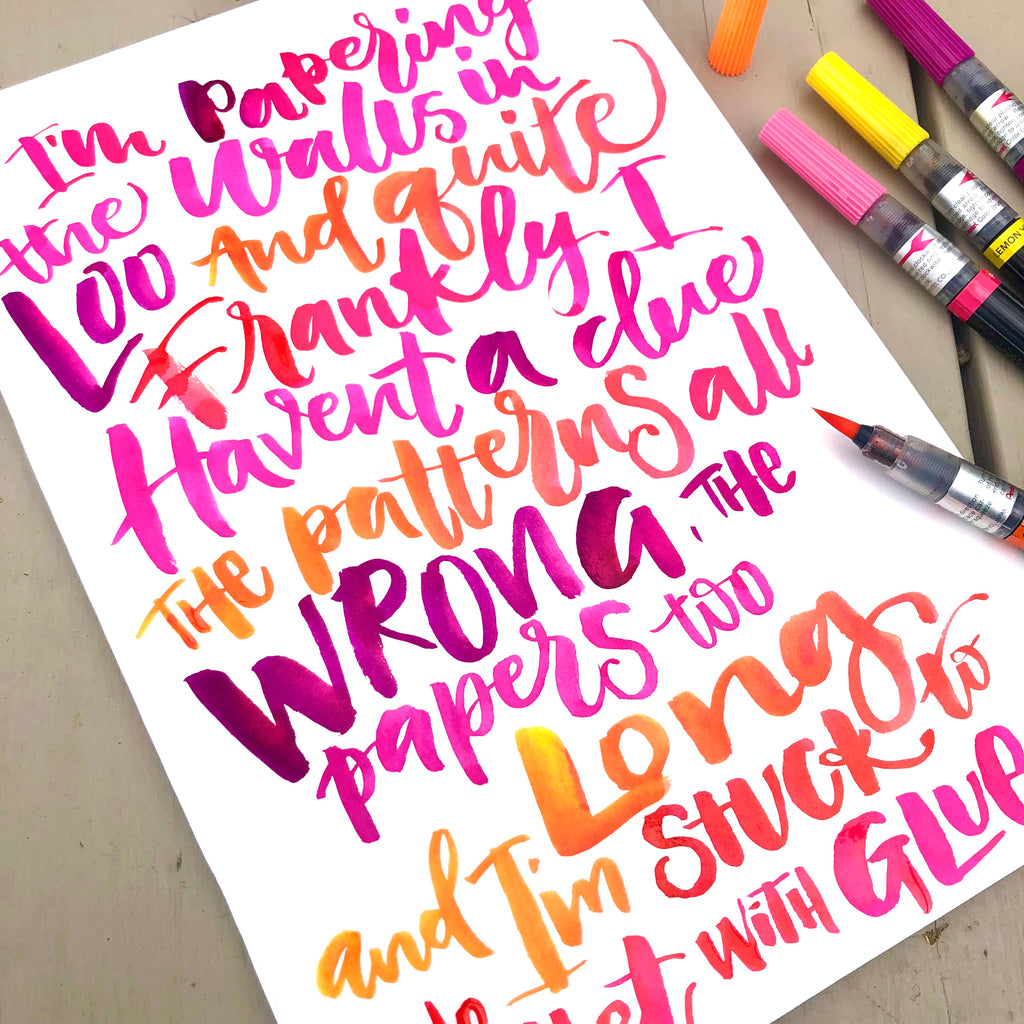 I'm papering
the walls in
Loo And quite
Frankly I
Havent a clue
THE patterns all
WRONG, THE
papers two
Long
and I'm Stuck to
with Glue
LEMON Y